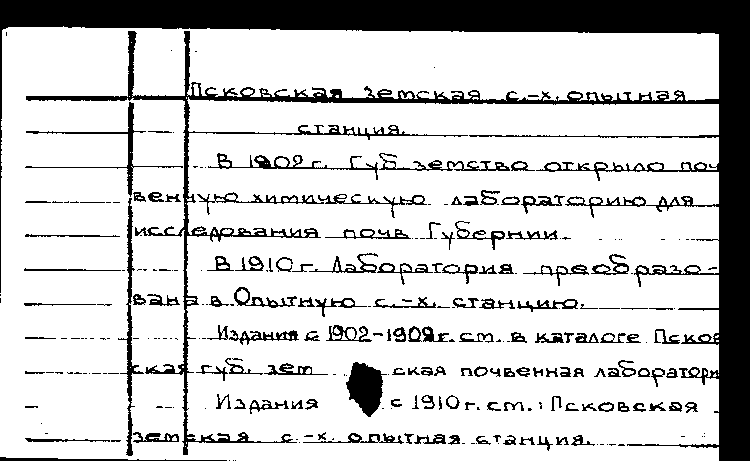 Псковская земская с.-х. опытная
станция.
В 1902 г. Губ. земство открыло поч
венную химическую лабораторию для
исследования почв Губернии.
В 1910 г. Лаборатория преобразо-
вана в Опытную с.-х. станцию.
Издания с 1902-1909 г. ст. в каталоге Псков
ская губ. зем ская почвенная лаборатори
Издания с 1910 г. ст.: Псковская
земская с.-х. опытная станция.